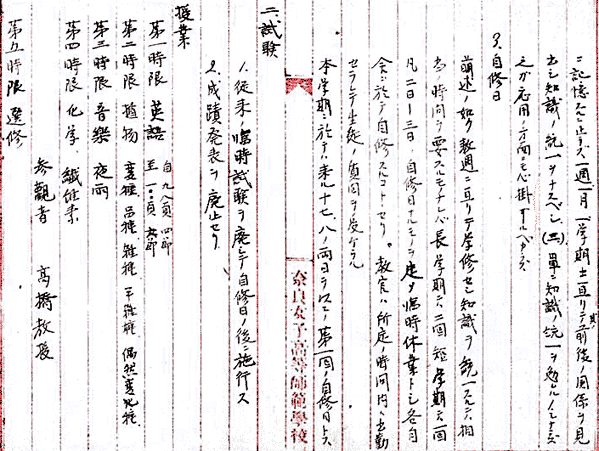 ニ記憶スルニ止ラズ一週一月一学期ニ亘リテ其前後ノ関係ヲ見
出シ知識ノ統一ヲナスベシ (三)単ニ知識ノ統一ヲ勉ムルノミナラズ
之ガ応用ノ方面ニモ心掛
3. 自修日
前述ノ如ク数週ニ亘リテ学修セシ知識ヲ統一スルニハ相
当ノ時間ヲ要スルモノナレバ長学期ニハ二回短学期ニハ一回
凡二日―三日ノ自修日ナルモノヲ定メ臨時休業トシ各自
ニ於テ自修スルコトセリ。教官ハ所定ノ時間内ハ出勤
セラレテ生徒ノ質問ヲ受ケラル
本学期ニ於テハ来ル十七、八ノ両日ヲ以テ第一回ノ自修日トス
奈良女子高等師範學校
二、試験
1. 従来ノ臨時試験ヲ廃シテ自修日ノ後ニ施行ス
2. 成蹟発表ヲ廃止セリ
授業
第一時限 英語 自九八頁 四節 至一〇 頁 節
第二時限 植物 変種 品種 雑種 偶然変化種
第三時限 音樂 夜雨
第四時限 化学 繊維素
参觀者 高橋教長
第五時限 選修